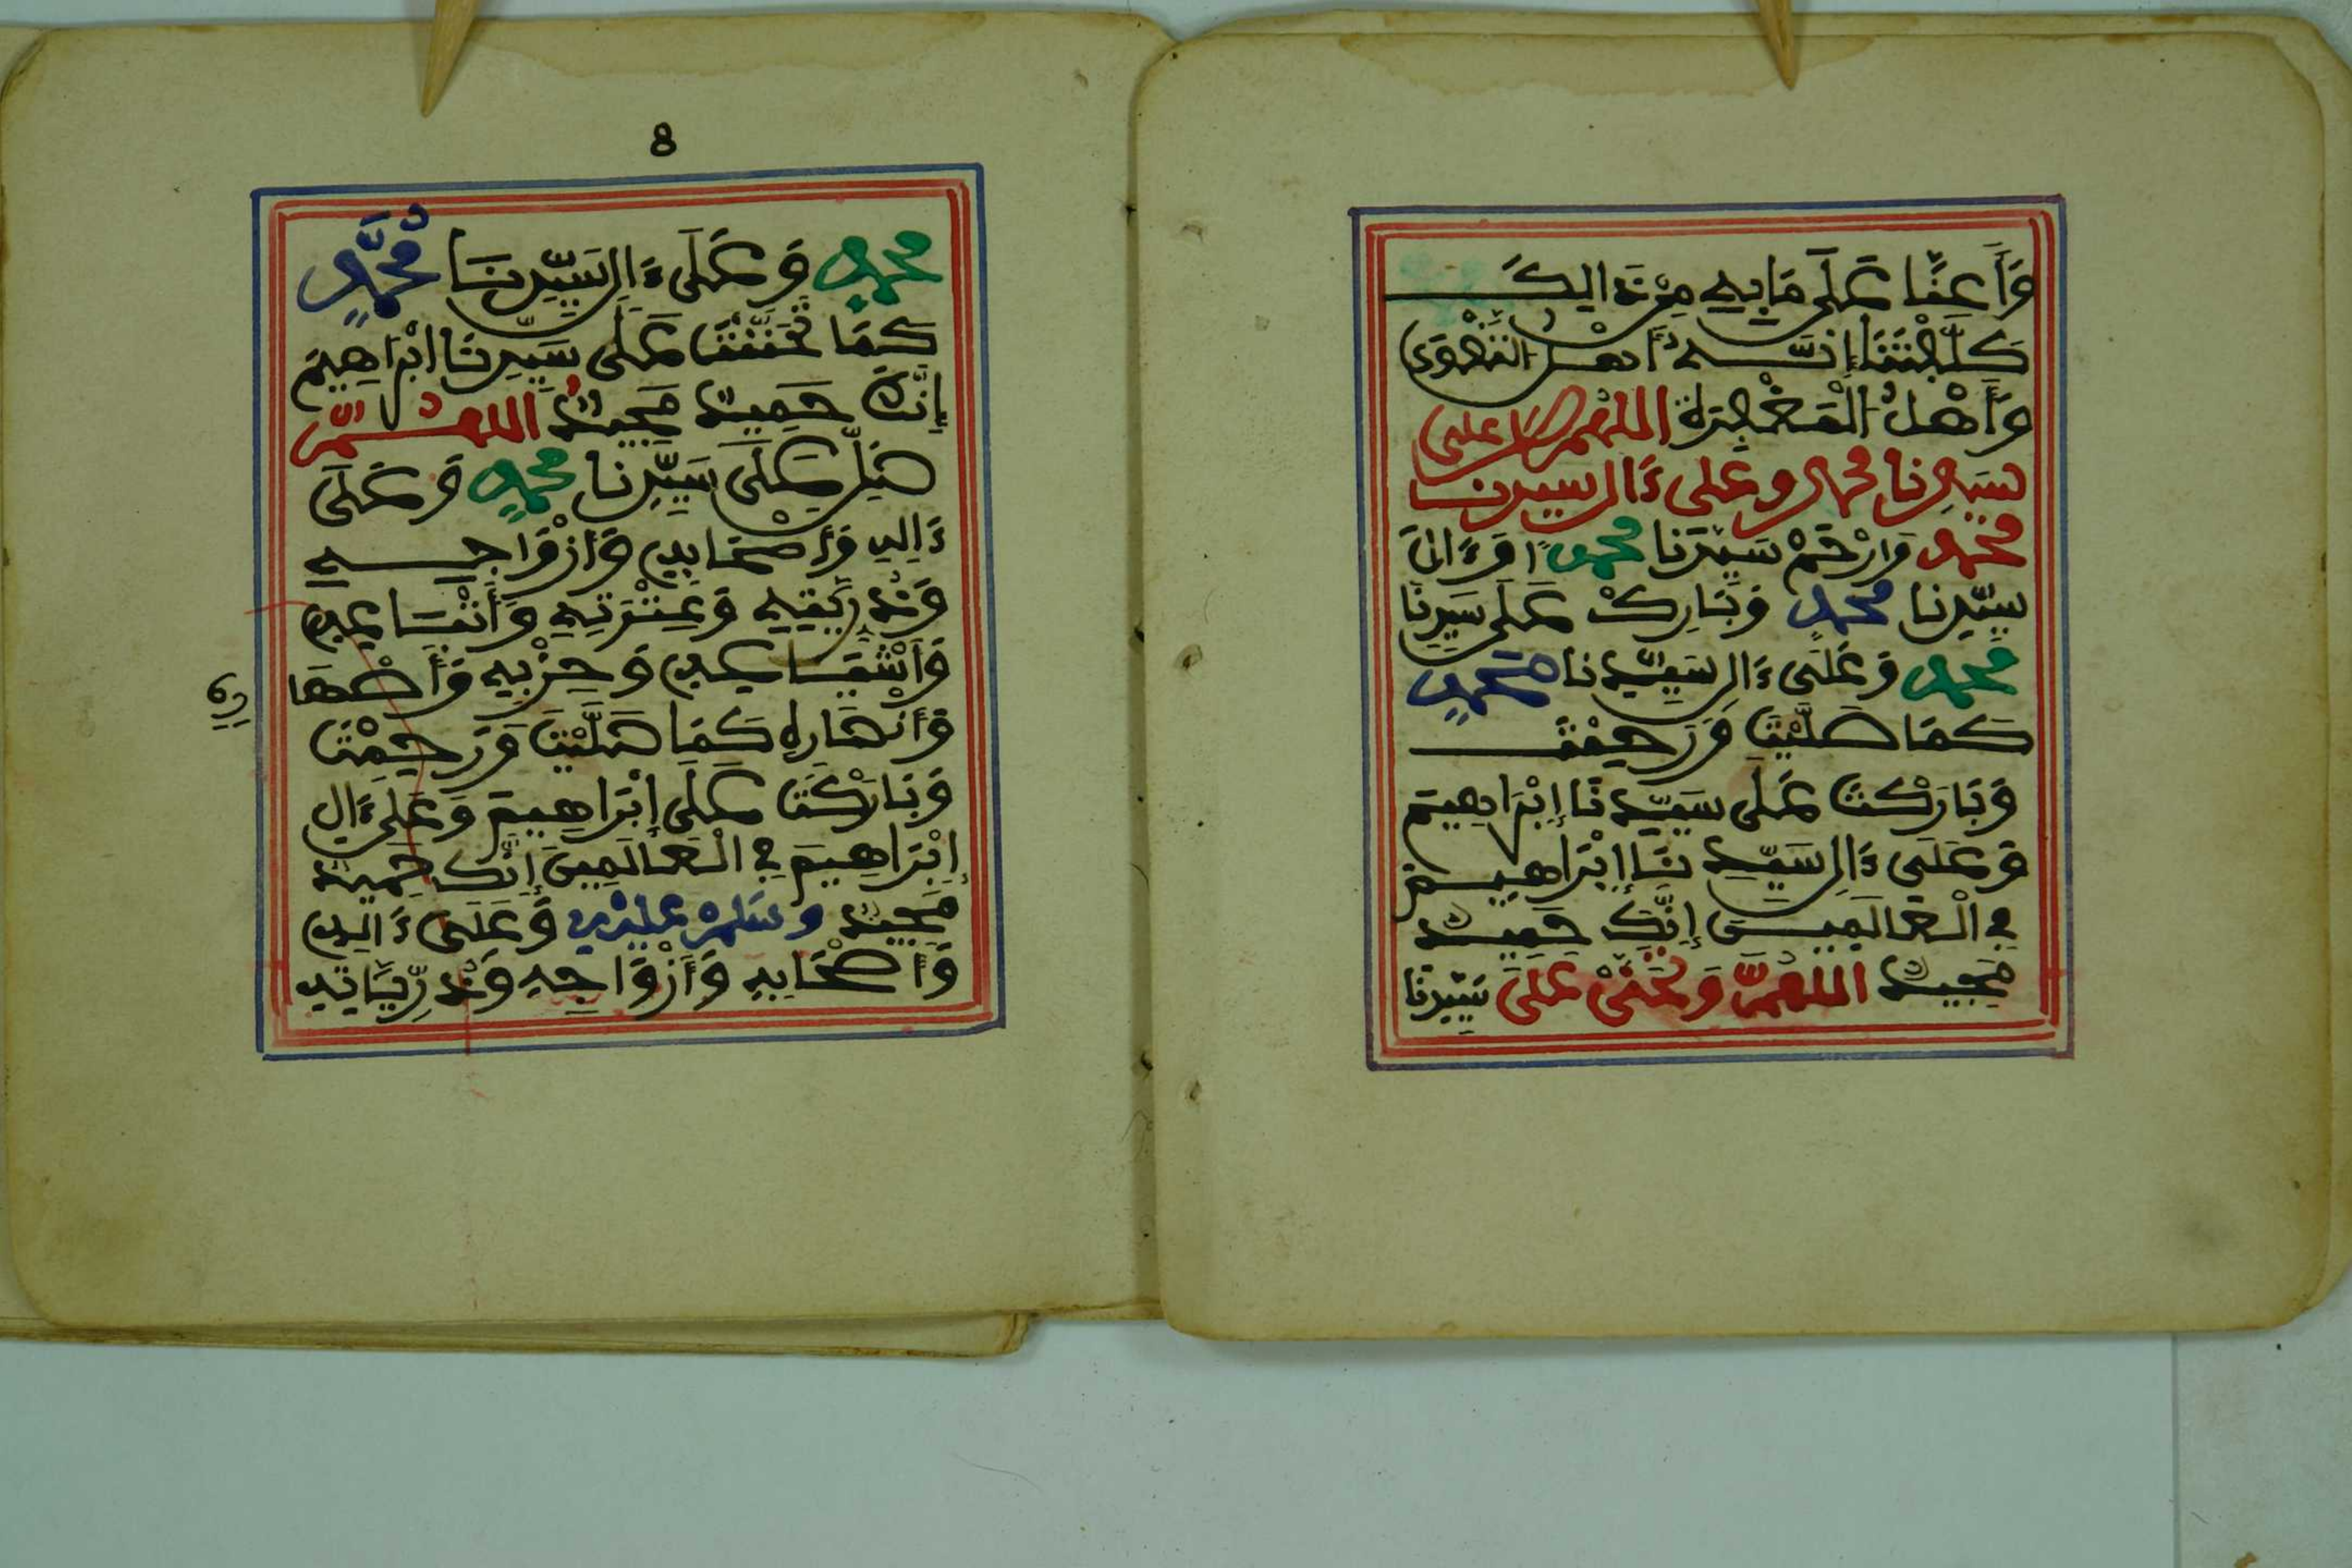 وَأَعِنَّا عَلَى مَا بِهِ مِنْ ذَالِكَ
كَلَّفْتَنَا إِنَّــهُ أَهْلُ التَّقْوَى
وَأَهْلُ الْمَغْفِرَةِ اللهم صل على
سَيِّدِنَا محمد وعلى ءَال سيدنا
محمد وَارْحَمْ سَيِّدَنَا محمدًا وَءَالَ
سَيِّدِنَا محمدٍ وَبَارِكْ عَلَى سَيِّدِنَا
محمدٍ وَعَلَى ءَالِ سَيِّدِنَا محمدٍ
كَمَا صَلَّيْتَ وَرَحِمْتَ
وَبَارَكْتَ عَلَى سَيِّدِنَا إِبْرَاهِيمَ
وَعَلَى ءَالِ سَيِّدِنَا إِبْرَاهِيمَ
فِي الْعَالَمِينَ إِنَّكَ حَمِيدٌ
مَجِيدٌ اللهُمَّ وَتَحَنَّنْ عَلَى سَيِّدِنَا
8
محمدٍ وَعَلَى ءَالِ سَيِّدِنَا مُحَمَّدٍ
كَمَا تَحَنَّنْتَ عَلَى سَيِّدِنَا ابْرَاهِيمَ
إِنَّكَ حَمِيدٌ مَجِيدٌ اللهُمَّ
صَلِّ عَلَى سَيِّدِنَا محمدٍ وَعَلَى
ءَالِهِ وَأَصْحَابِهِ وَأَزْوَاجِهِ
وَذُرِّيَّتِهِ وَعِتْرَتِهِ وَأَتْبَاعِهِ
وَأَشْيَاعِهِ وَحِزْبِهِ وَأَصْهَا
رِهِ
وَأَنْصَارِهِ كَمَا صَلَّيْتَ وَرَحِمْتَ
وَبَارَكْتَ عَلَى إِبْرَاهِيمَ وَعَلَى ءَالِ
إِبْرَاهِيمَ فِي الْعَالَمِينَ إِنَّكَ حَمِيدٌ
مَجِيدٌ وَسَلِّمْ عَلَيْهِ وَعَلَى ءَالِهِ
وَأَصْحَابِهِ وَأَزْوَاجِهِ وَذُرِّيَّاتِهِ